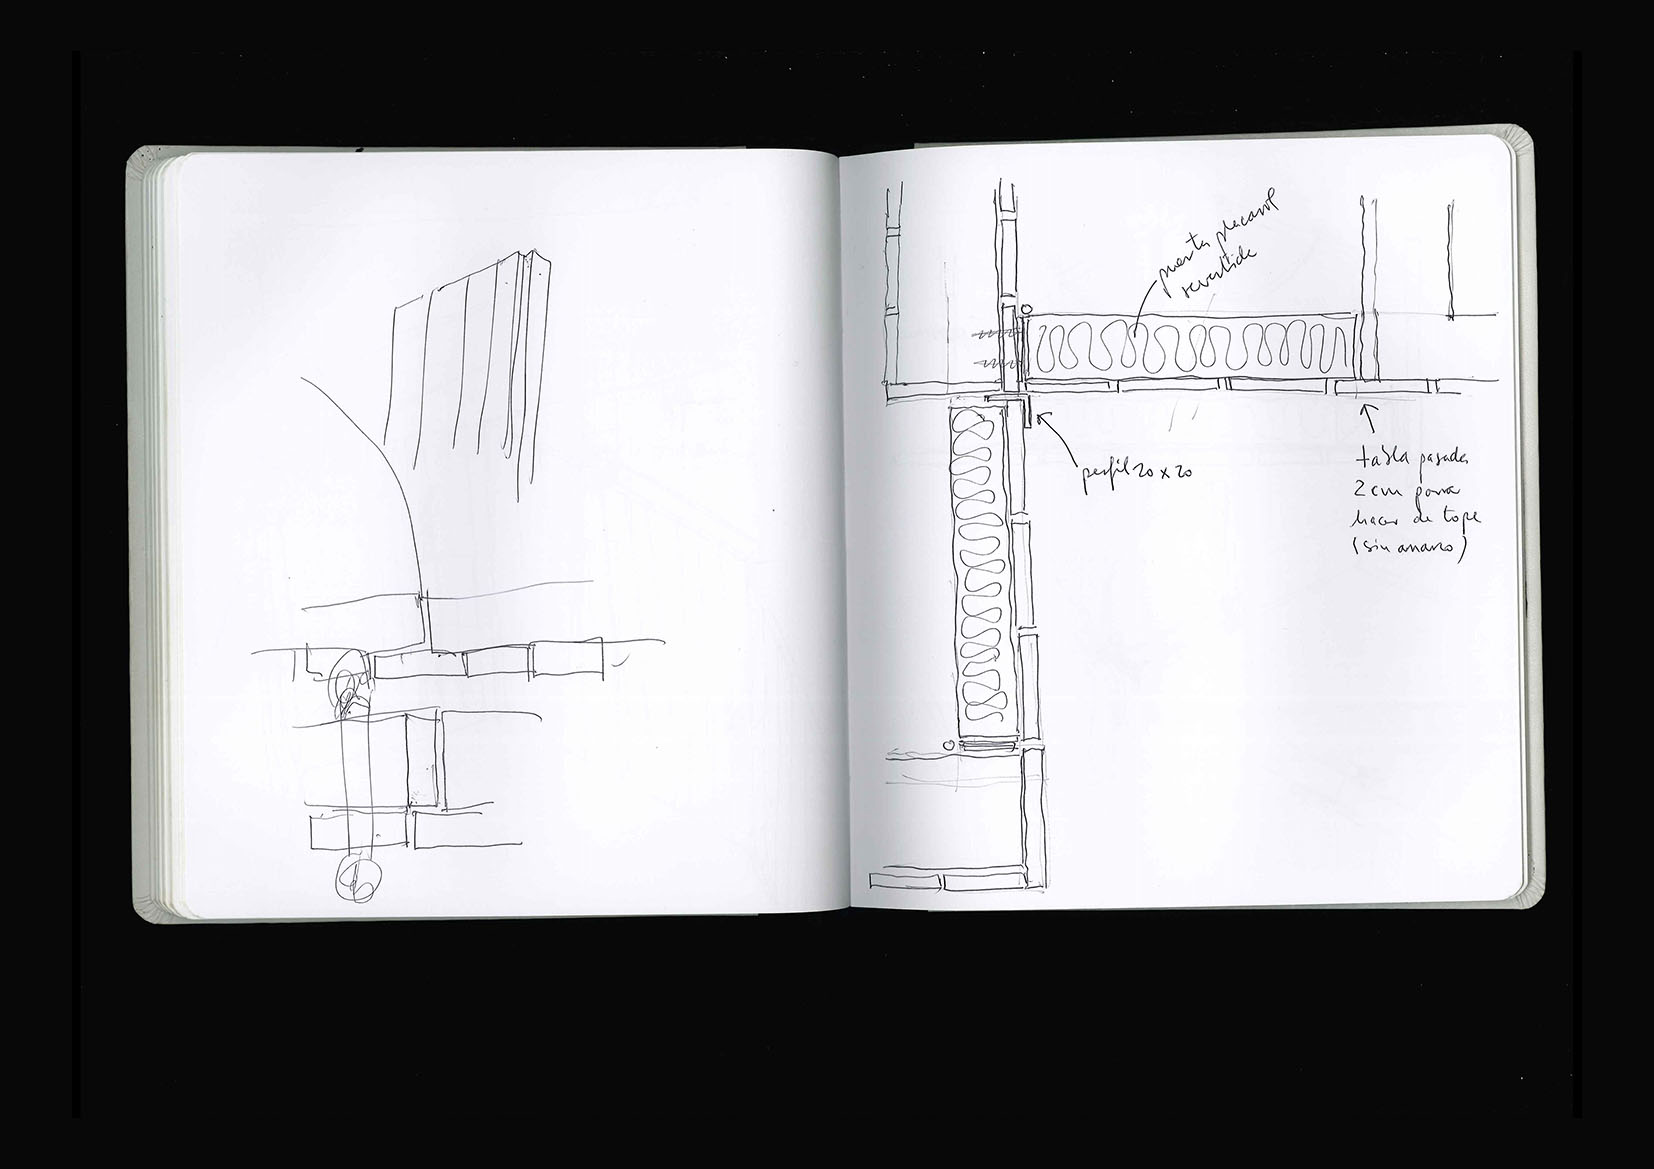 puerta placarol
revestida
perfil 20 x 20
tabla pasada
2 cm para
hacer de tope
(sin marco)